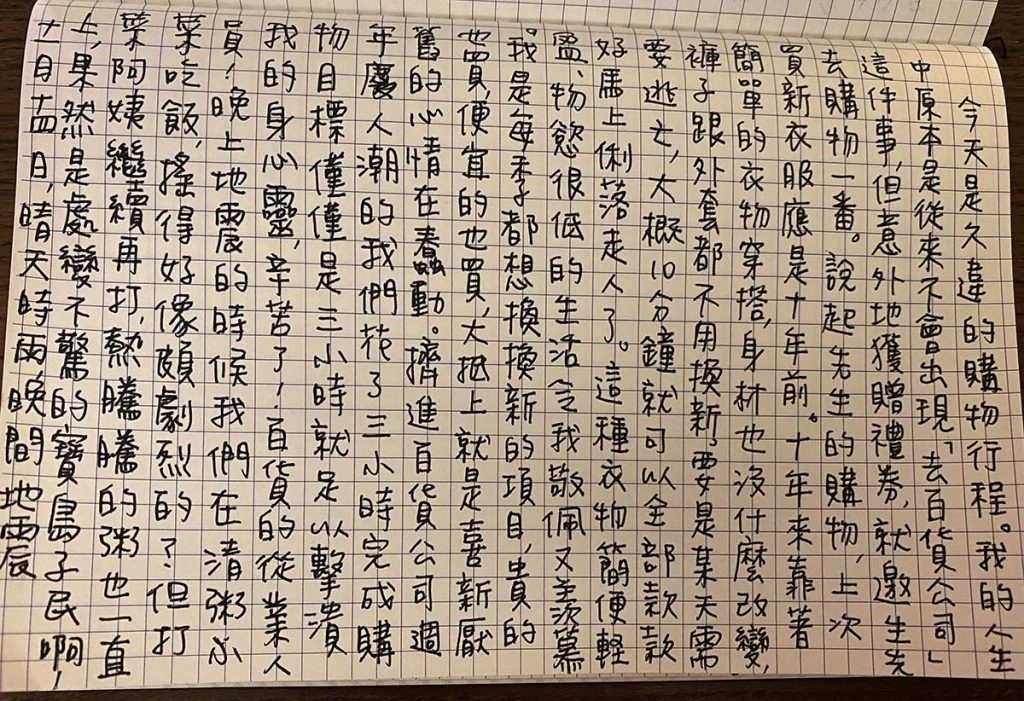 今天是久違的購物行程。我的人生
中原本是從來不會出現「去百貨公司」
這件事,但意外地獲贈禮券,就邀生先
去購物一番。說起先生的購物,上次
買新衣服應是十年前。十年來靠著
簡單的衣物穿搭,身材也沒什麼改變,
褲子跟外套都不用換新,要是某天需
要逃亡,大概10分鐘就可以全部款款
好馬上俐落走人了。這種衣物簡便輕
盈、物慾很低的生活令我敬佩又羨慕
。我是每季都想換換新的項目,貴的
買,便宜的也買,大抵上就是喜新厭
舊的心情在蠢動。擠進百貨公司週
年慶人潮的我們花了三小時完成購
物目標,僅僅是三小時就足以擊潰
我的身心靈,辛苦了!百貨的從業人
員!晚上地震的時候我們在清粥小
菜吃飯,搖得好像頗劇烈的?但打
菜阿姨繼續再打,熱騰騰的粥也一直
上,果然是處變不驚的寶島子民啊,